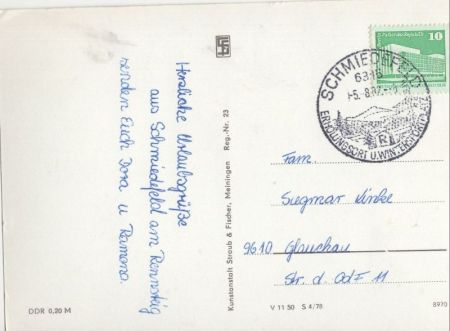 Herzliche Urlaubsgrüße
aus Schmiedefeld am Rennstieg
senden Euch Dora u Ramona.
Kunstanstalt Straub & Fischer, Meiningen Reg.-Nr. 23
10
SCHMIEDEFELD
ERHOLUNGSORT U. WINTERSPORTPLATZ
Fam.
Siegmar
9610 Glauchau
Str. d. OdF 11
DDR 0,20 M
V 11 50 S 4/78
8970